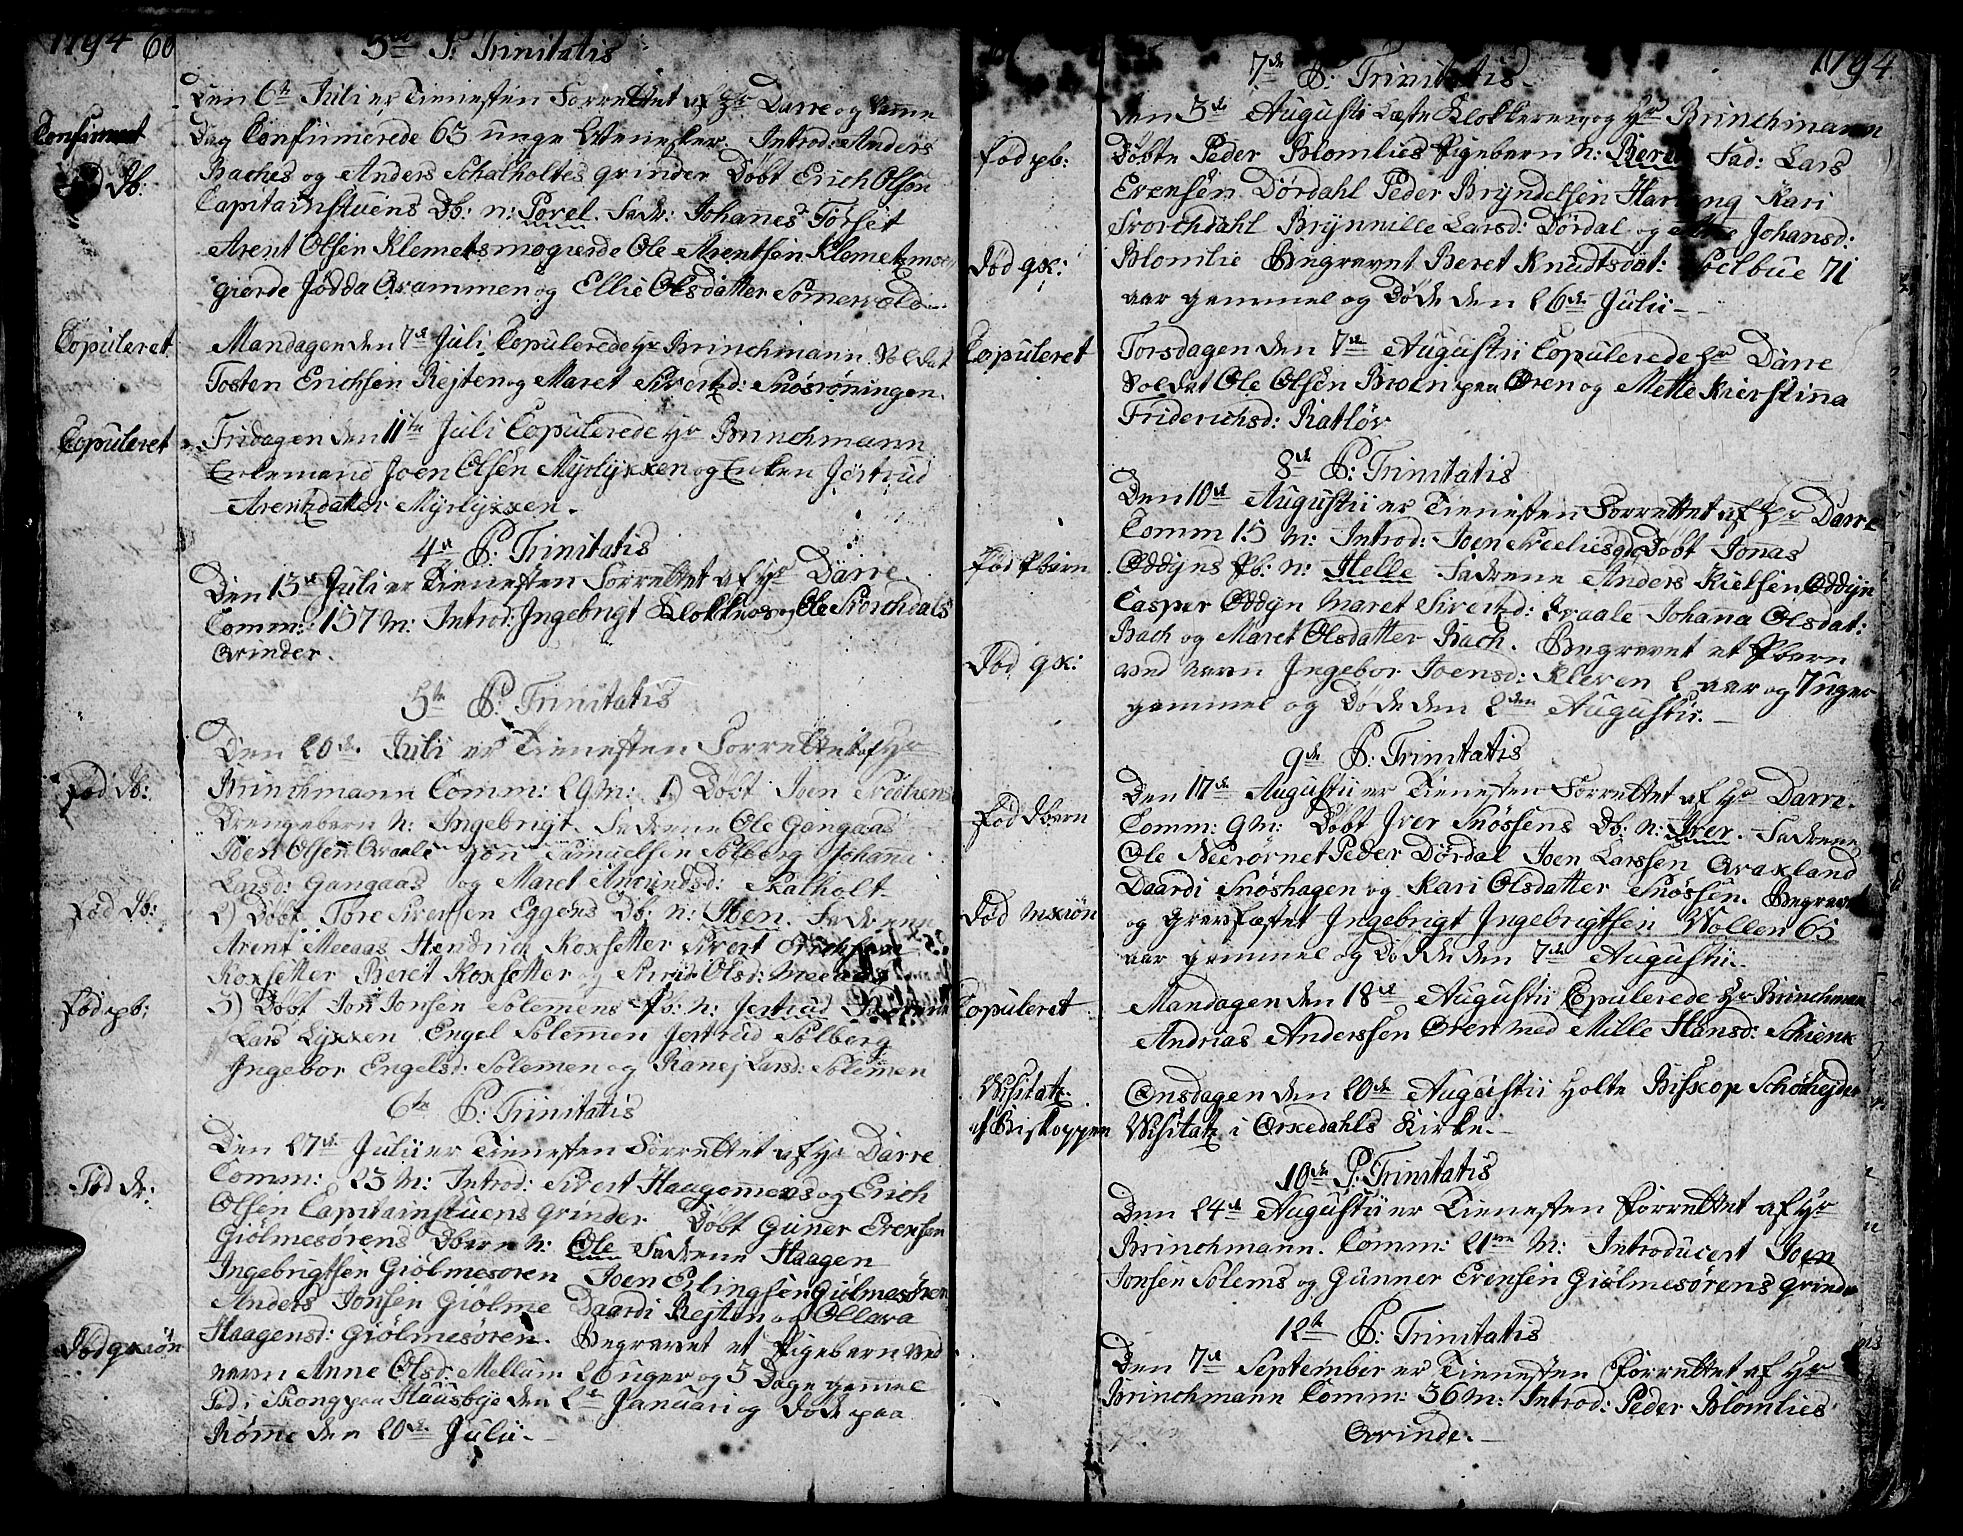 1794 60
3die P: Trinitatis
Den 6te Juli er Tienesten Forrettet af Hr Darre og samme
Confirmeret
Dag Confirmerede 63 unge Mennesker. Introd: Anders
Baches og Anders Schalholtes qvinder Døbt Erich Olsen
Db:
Capitainstuens Db: n: Porel. Fadr: Johannes Forset
Arent Olsen Klemetsmogierde Ole Arentsen Klemetzmoe
gierde Jødda Qvammen og Ellie Olsdatter Somervold.
Copuleret
Mandagen den 7de Juli Copulerede Hr Brinchmann Soldat
Tosten Erichsen Rejten og Maret Sivertzd: Snøsrøningen.
Copuleret
Fridagen den 11te Juli Copulerede Hr Brinchmann
Enkemand Joen Olsen Myrlyxxen og Enken Jertrud
Arentzdatter Myrlyxxen.
4de P: Trinitatis
Den 13de Juli er Tienesten Forrettet af Hr Darre
Comm: 157 M: Introd: Ingebrigt Klokkers og Ole Storchdals
Qvinder.
5te P: Trinitatis
Den 20de Juli er Tienesten Forrettet af Hr
Fød Db:
Brinchmann Comm: 29 M: 1) Døbt Joen
Drengebarn N: Ingebrigt. Fadderne Ole Gangaas
Joen Olsen Qvaale Jon Samuelsen Solberg Johanna
Larsd: Gangaas og Maret Amundsd: Skalholt
Fød Db:
2) Døbt Tore Sivertsen Eggens Db: n: Iben. Fadderne
Arent Meeaas Hendrich Roxsetter Sivert
Roxsetter Beret Roxsetter og Siri Olsd: Meeaas
Fød pb:
3) Døbt Jon Jonsen Solemens Pb: n: Jertrud
Lars Lyxxen Engel Solemen Jertrud Solberg
Ingebor Engelsd: Solemen og Ranej Larsd: Solemen
6te P: Trinitatis
Den 27de Julii er Tienesten Forrettet af Hr Darre
Fød dr:
Comm: 23 M: Introd: Sivert Haagomens og Erich
Olsen Capitainstuens qvinder Døbt Guner Evensen
Giølmesørens Dbarn N: Ole Fadderne Haagen
Ingebrigtsen Giølmesøren Joen Erlingsen Giølmesøren
Anders Jonsen Giølme Daardi Rejten og Ollava
Haagensd: Giølmesøren. Begravet et Pigebarn ved
Død qxiøn
navn Anne Olsd: Mellum 26 uger og 5 Dage gamel
Fød i Skong paa Huusbye den 2de Januari og døde paa
Rømme den 20de Julii.
1794
7de P: Trinitatis
Den 3de Augustii Læste Klokkeren og Hr Brinchmann
Fød pb:
Døbte Peder Blomlies Pigebarn N: Beret Fad: Lars
Evensen Dørdahl Peder Bryndelsen Harang Kari
Storchdahl Brynnille Larsd: Dørdal og Johansd:
Død qx:
Blomlie Begravet Beret Knudtsdat: Soelbue 71
aar gammel og Døde den 26de Julii
Copuleret
Torsdagen den 7de Augustii Copulerede Hr Darre
Soldat Ole Olsen Broen paa Øren og Mette Kierstina
Friderichsd: Ratløv
8de P: Trinitatis
Den 10de Augustii er Tienesten Forrettet af Hr Darre
Comm 15 M: Introd: Joen Døbt Jonas
Fød Pbarn
Oddyns Pb: n: Helle Fadderne Anders Kielsen Oddyn
Casper Oddyn Maret Sivertzd: Qvaale Johana Olsdat:
Bach og Maret Olsdatter Bach. Begravet et Pbarn
Død qx:
ved navn Ingebor Joensd: Kleven 2 aar og 7 uger
gammel og Døde den 2den Augustii.
9de P: Trinitatis
Den 17de Augustii er Tienesten Forrettet af Hr Darre.
Fød Dbarn
Comm: 9 M: Døbt Iver Snøssens Db: n: Iver. Fadderne
Ole Neerørnet Peder Dørdal Joen Larssen Qvaxland
Daardi Snøshagen og Kari Olsdatter Snøssen. Begravet
Død mxiøn
og Gravfæstet Ingebrigt Ingebrigtsen Wollen 65
aar gammel og Døde den 7de Augustii.
Copuleret
Mandagen den 18de Augustii Copulerede Hr Brinchman
Andrias Anderssøn Øren med Mille Hansd: Schienx
Visitatz
af Biskoppen
Onsdagen den 20de Augustii holte Bisskop Schønhejder
Visitatz i Orxedahls Kirke.
10de P: Trinitatis
Den 24de Augustii er Tienesten Forrettet af Hr
Brinchmann. Comm: 21 M: Introducert Joen
Jonsen Solems og Gunner Evensen Giølmesørens qvinder
12te P: Trinitatis
Den 7de September er Tienesten Forrettet af Hr
Brinchmann Comm: 36 M: Introd: Peder Blomlies
Qvinde.